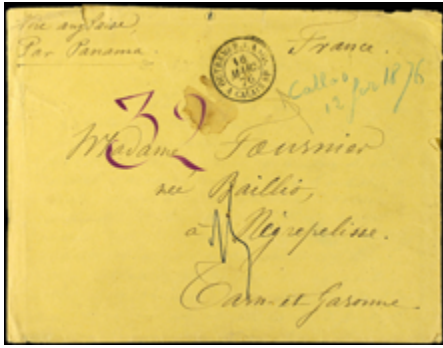 Voie anglaise
Par Panama.
France.
16
MARS
76
A CALAIS
Callao
12 1876
32
Madame Fournier
née Baillio,
à Négrepelisse.
Tarn-et-Garonne.